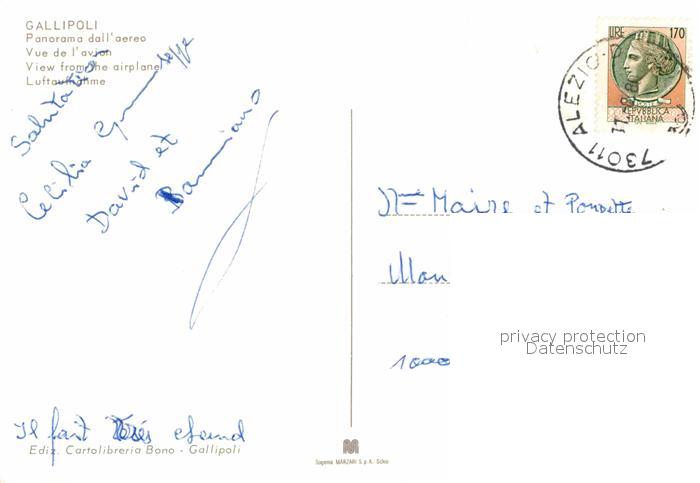 GALLIPOLI
Panorama dall'aereo
Vue de l'avion
View from the airplane
Luftaufnahme
Salutations
Cecilia Giuseppe
David et
Damiano
Il fait très chaud
Ediz. Cartolibreria Bono - Gallipoli
Sagema MARZARI S.p.A. Schio
LIRE 170
POSTE
REPUBBLICA
ITALIANA
73011 ALEZIO
Mme Maire et
1000
privacy protection
Datenschutz